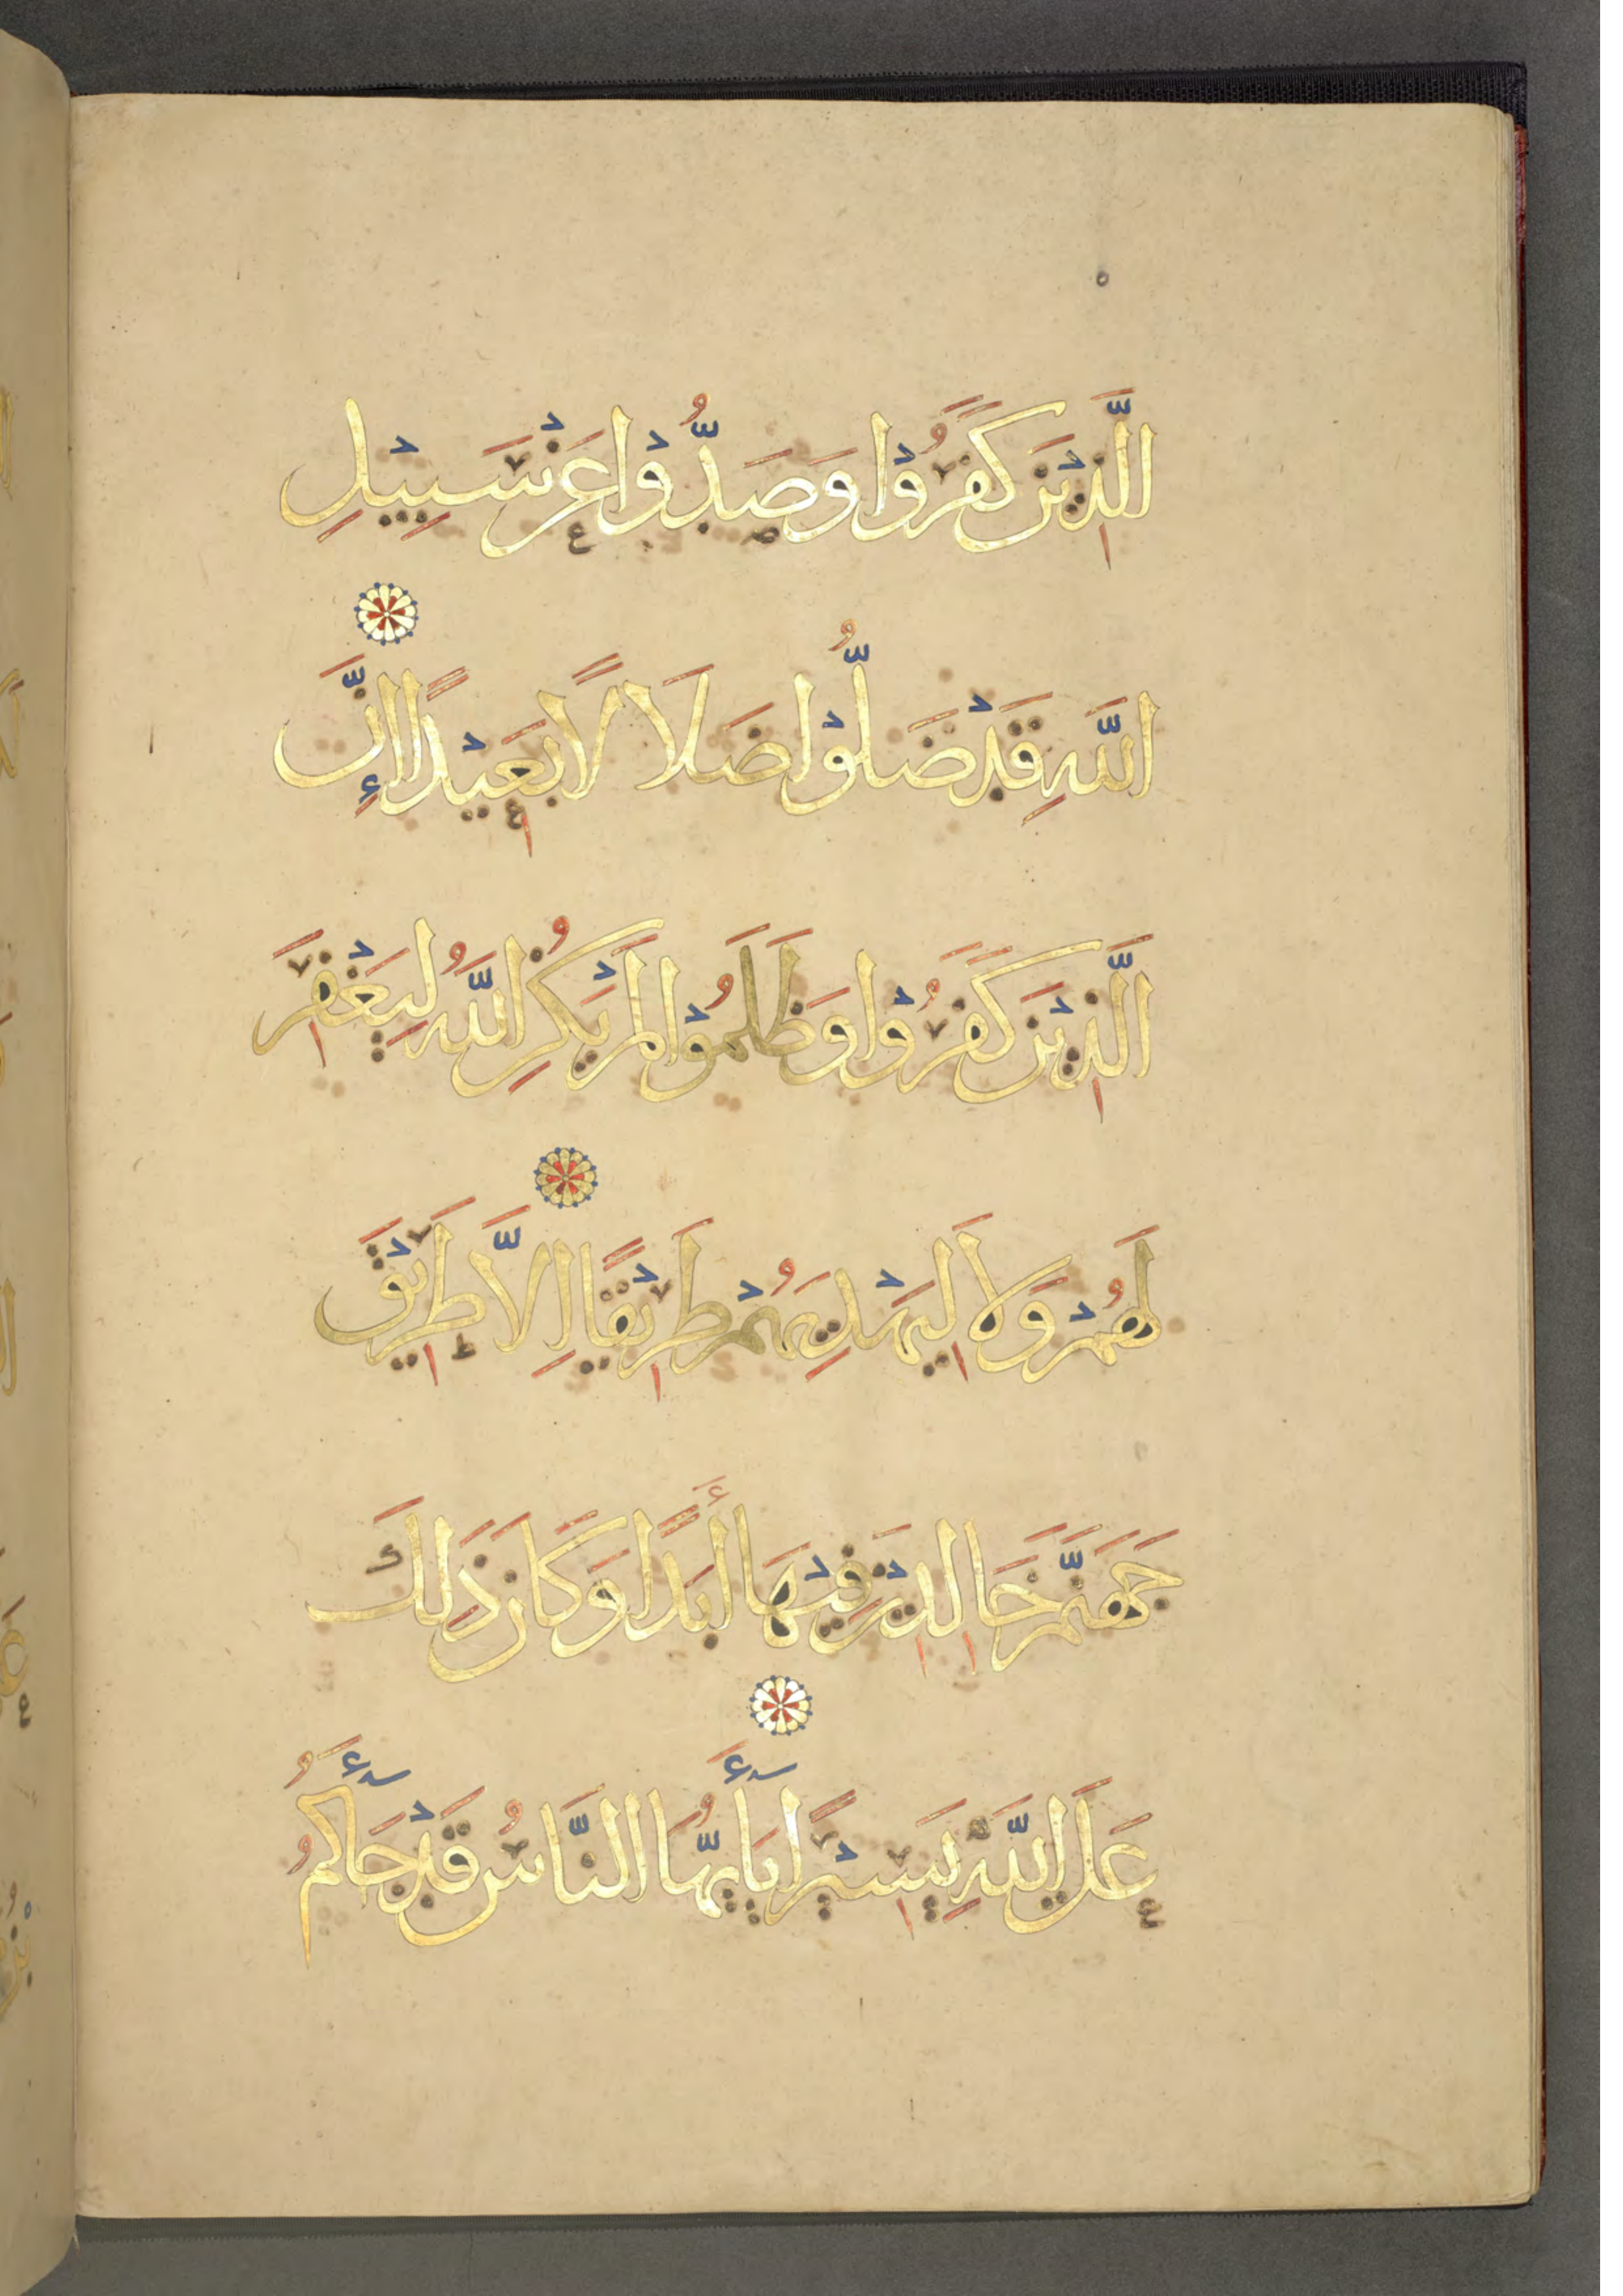 الَّذِيْنَ كَفَرُوْا وَصَدُّوْا عَنْ سَبِيْلِ
اللَّهِ قَدْ ضَلُّوْا ضَلَالًا بَعِيْدًا إِنَّ
الَّذِيْنَ كَفَرُوْا وَظَلَمُوْا لَمْ يَكُنِ اللَّهُ لِيَغْفِرَ
لَهُمْ وَلَا لِيَهْدِيَهُمْ طَرِيْقًا اِلَّا طَرِيْقَ
جَهَنَّمَ خَالِدِيْنَ فِيْهَا أَبَدًا وَكَانَ ذَلِكَ
عَلَى اللَّهِ يَسِيْرًا يَأَيُّهَا النَّاسُ قَدْ جَأَكُمُ